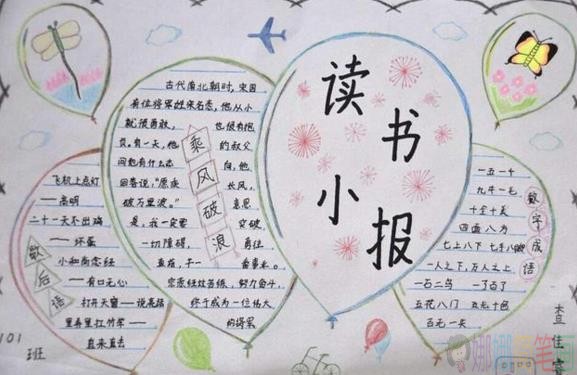 读书
小报
乘风破浪
古代南北朝时，宋国
有位将军姓宗名悫，他从小
就很勇敢，也很有抱
负。有一天，他的叔父
问他有什么志向，他
回答说，“愿乘长风，
破万里浪。”意思
是，我一定要突破
一切障碍，勇往
直前，干一番事业。
宗悫经过苦练，努力奋斗，
终于成为一位伟大
的将军
歇后语
飞机上点灯
——高明
二十一天不出鸡
——坏蛋
小和尚念经
——有口无心
打开天窗——说亮话
里弄里扛竹竿——
直来直去
数字成语
一五一十
九牛一毛
十全十美
四面八方
七上八下 七手八脚
一人之下，万人之上
一石二鸟 一了百了
五花八门 五光十色
百无一失
101
班